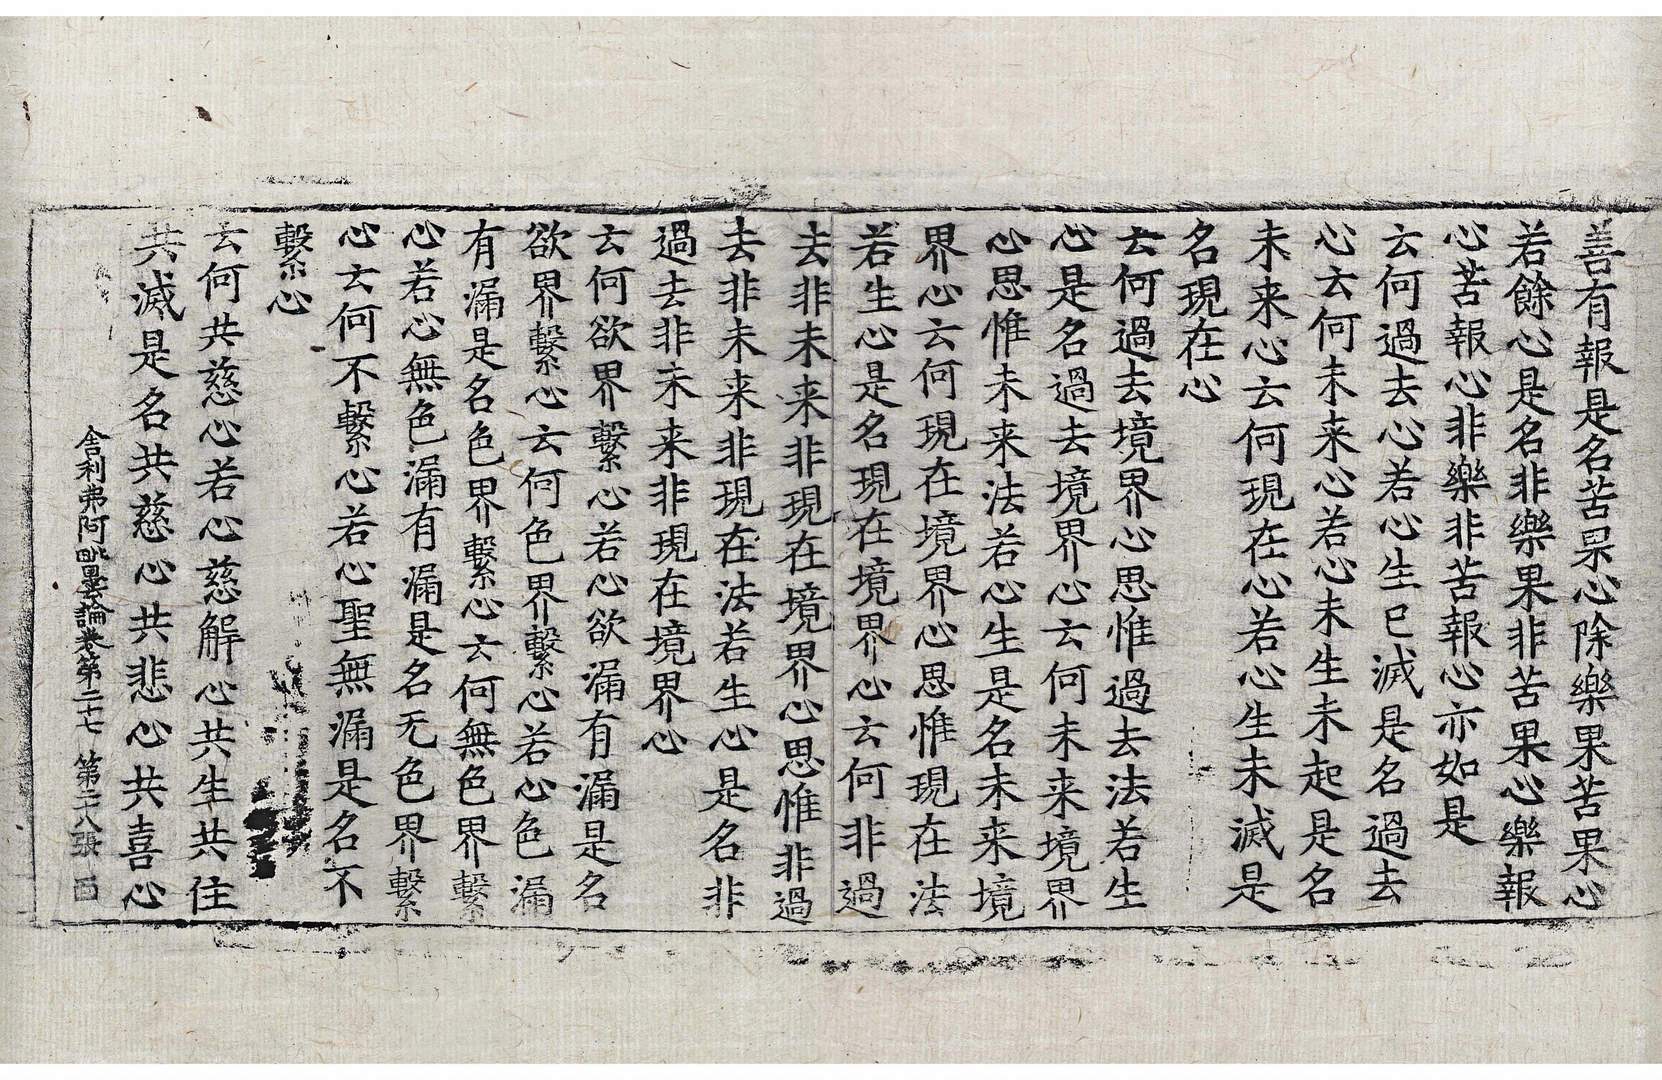 善有報是名苦果心除樂果苦果心
若餘心是名非樂果非苦果心樂報
心苦報心非樂非苦報心亦如是
云何過去心若心生已滅是名過去
心云何未来心若心未生未起是名
未来心云何現在心若心生未滅是
名現在心
云何過去境界心思惟過去法若生
心是名過去境界心云何未来境界
心思惟未来法若心生是名未来境
界心云何現在境界心思惟現在法
若生心是名現在境界心云何非過
去非未来非現在境界心思惟非過
去非未来非現在法若生心是名非
過去非未来非現在境界心
云何欲界繫心若心欲漏有漏是名
欲界繫心云何色界繫心若心色漏
有漏是名色界繫心云何無色界繫
心若心無色漏有漏是名无色界繫
心云何不繫心若心聖無漏是名不
繫心
云何共慈心若心慈解心共生共住
共滅是名共慈心共悲心共喜心
舍利弗阿毗曇論卷第二十七 第二八張